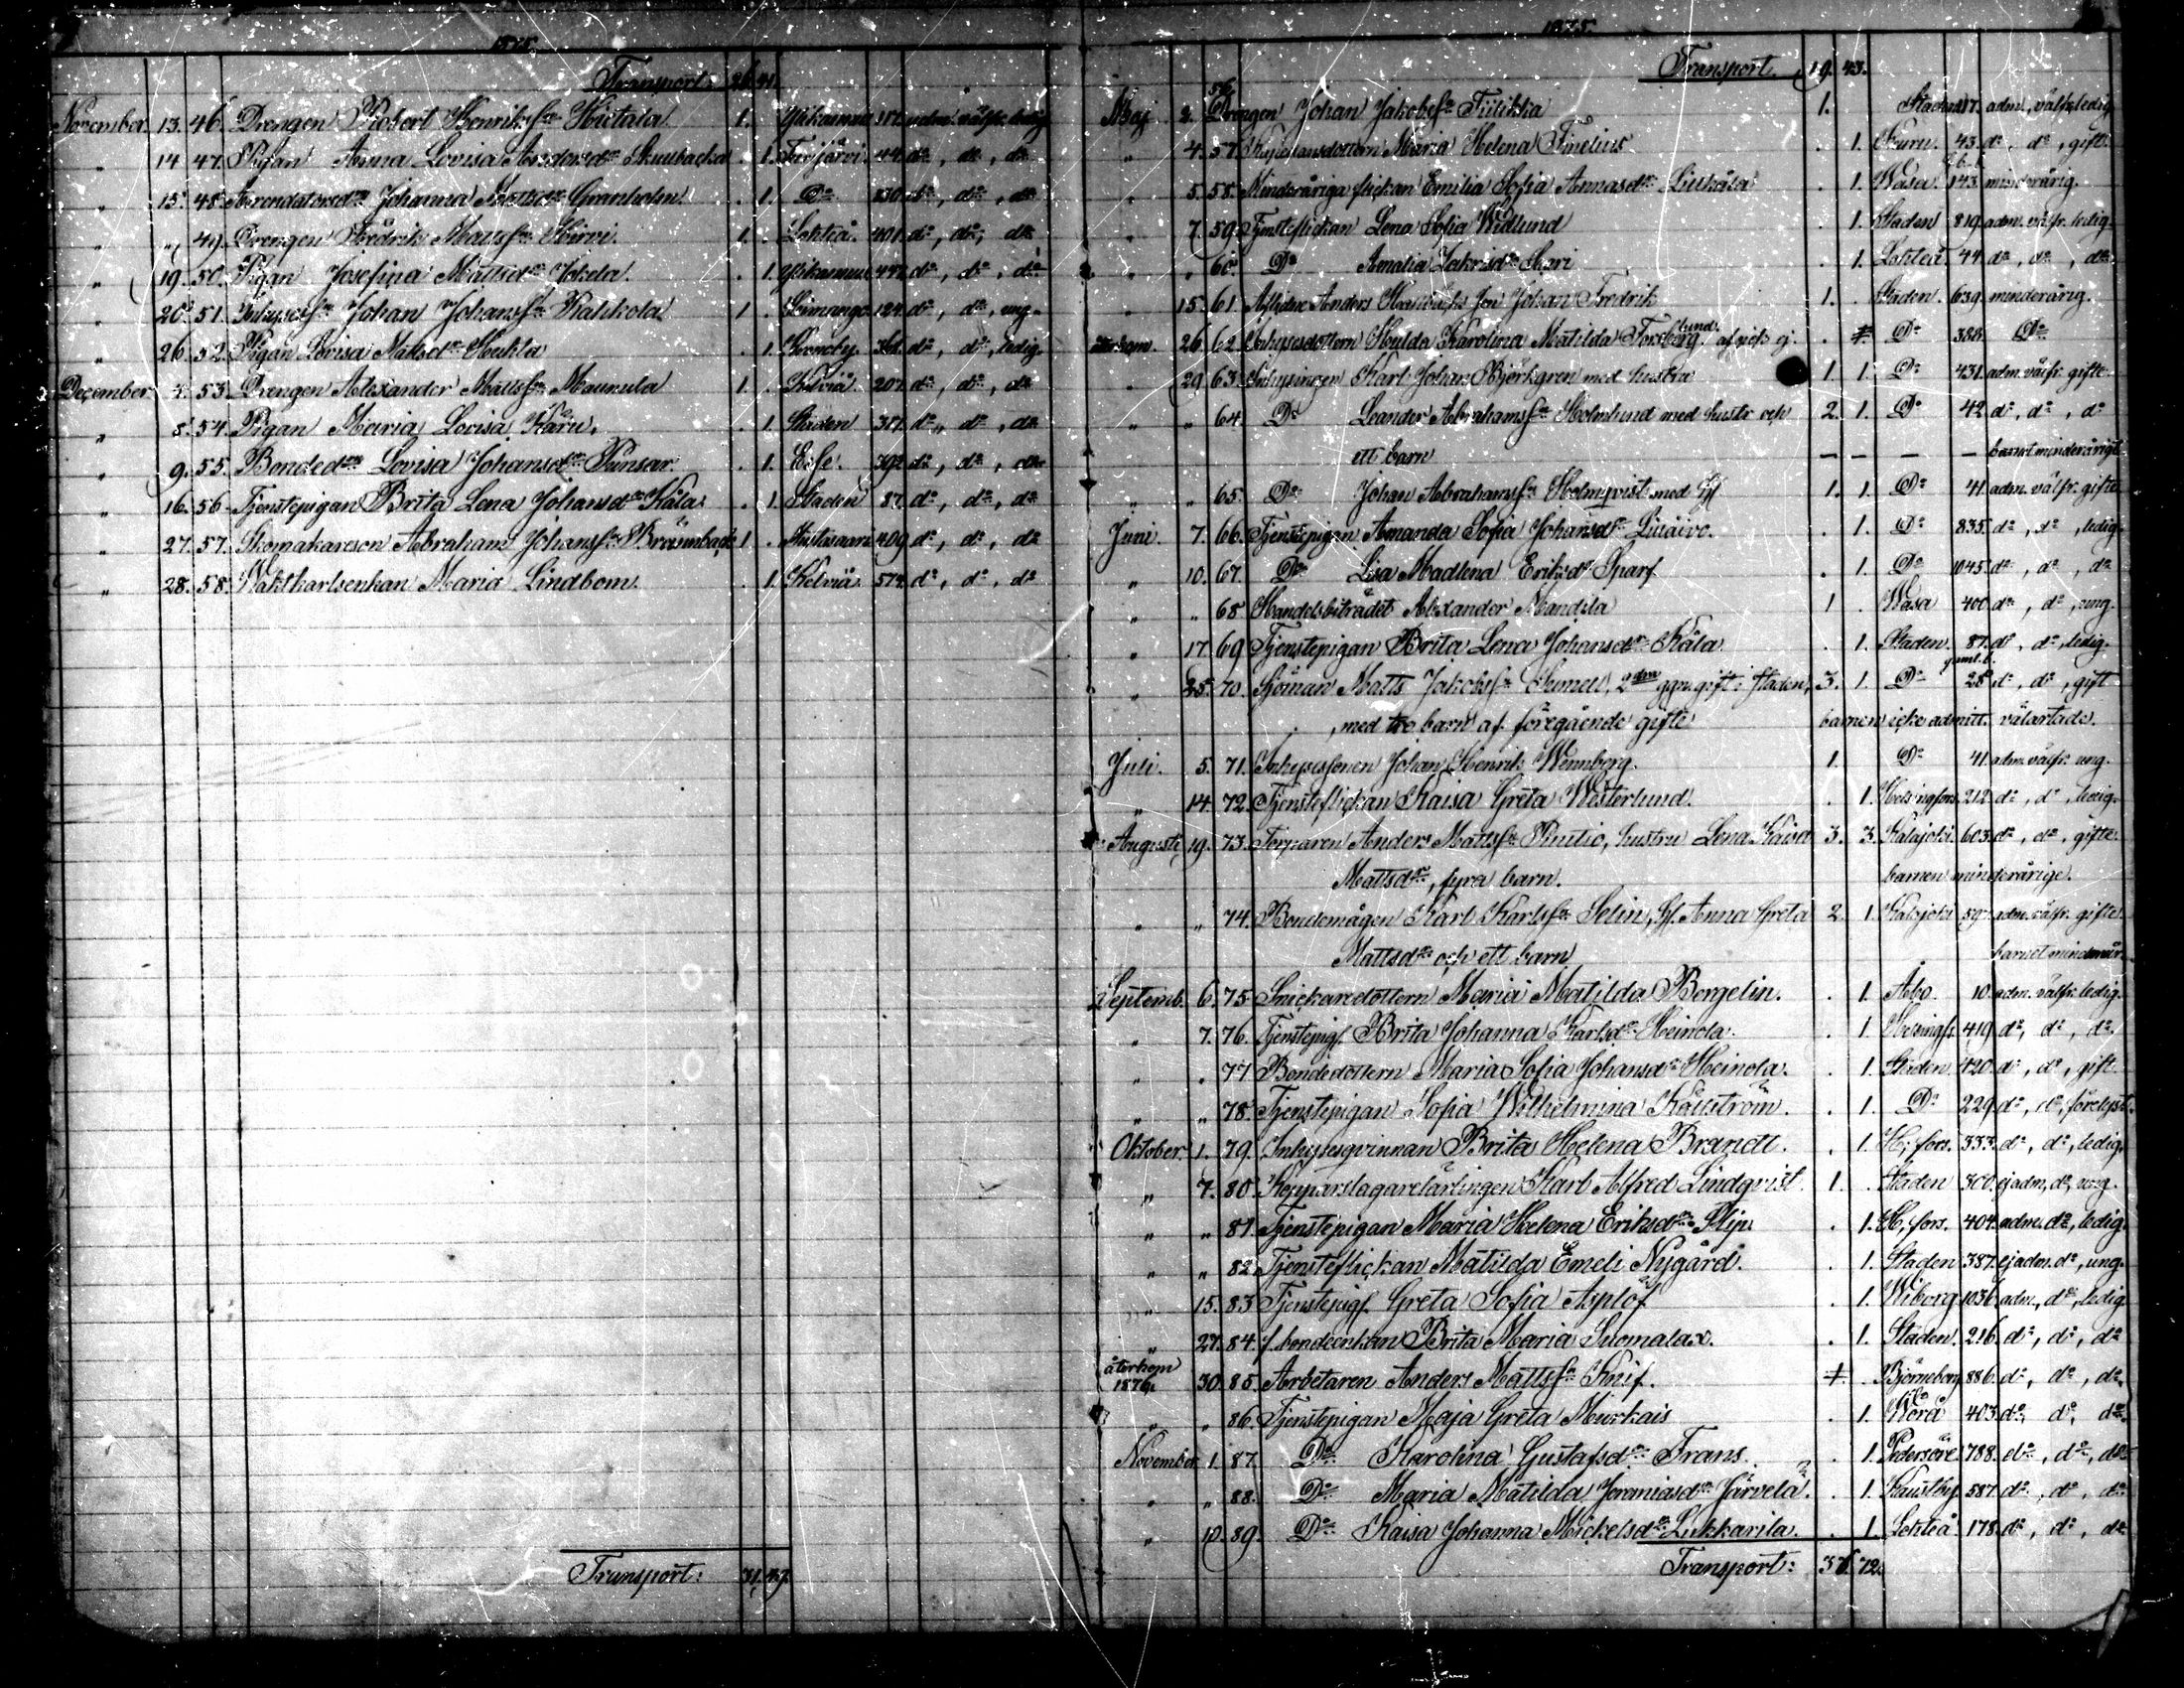 1875.
Transport: 26. 41.
November 13. 46. Drengen Robert Henriksson Hietala 1. . Ylikannus 317. adm. välfr. ledig
" 14 47. Pigan Anna Lovisa Andersdr . 1. 44. do, do, do
" 15. 48. Arrendatorsdr Johanna Mattsdr Granholm . 1. Do 830. do, do, do
" " 49. Drengen Fredrik Mattsson Hirvi. 1. . Lohteå. 401. do, do, do
" 19. 50. Pigan Josefina Mattsdr Jokela. . 1. Ylikannus do, do, do
" 20. 51. Johan Johansson Kahkola 1 . Himango 124. do, do, ung.
" 26. 52. Pigan Lovisa Mattsdr Huhta . 1. do, do, ledig.
December 4. 53. Drengen Alexander Mattsson Maunula 1. . Kelviå 207. do, do, do
" 8. 54. Pigan Maria Lovisa Karu. . 1. Staden 317. do, do, do
" 9. 55. Bondedtrn Lovisa Johansdr Punsar. . 1. Esse. 392. do, do, do
" 16. 56. Tjenstepigan Brita Lena Johansdr Kåla . 1. Staden 87. do, do, do
" 27. 57. Skomakareson Abraham Johansson 1 . 409. do, do, do
" 28. 58. Maria Lindbom. . 1. Kelviå 572. do, do, do
Transport: 31. 49.
1875.
Transport, 19. 43.
Maj 2. 56. Drengen Johan Jakobsson 1. Staden 317. adm., välfr. ledig
" 4. 57. Maria Helena Finelius . 1. 43. do, do, gift.
" 5. 58. Minderåriga flickan Emilia Sofia Annasdr . 1. Wasa. 143. minderårig.
" 7. 59. Tjensteflickan Lena Sofia Widlund . 1. Staden 819. adm. välfr. ledig.
" " 60. Do Amalia Jakrisdr Skari . 1. Lohteå 44. do, do, do
" 15. 61. Aflidne Anders son Johan Fredrik 1. . Staden. 639. minderårig.
26. 62 Inhysesdottern Hulda Karolina Matilda Forsberg lund. afgick ej. . 1 Do 388. Do
" 29. 63. Inhysingen Karl Johan Björkgren med hustru 1. 1. Do 431. adm. välfr. gifte
" " 64. Do Leander Abrahamsson Holmlund med hustr och 2. 1. Do 42 do, do, do
ett barn — — — — barnet minderårigt
" " 65. Do Johan Abrahamsson Holmqvist med Hl 1. 1. Do 41. adm. välfr. gifte
Juni. 7. 66. Tjenstepigan Amanda Sofia Johansdr . 1. Do 835. do, do, ledig.
" 10. 67. Do Lisa Madlena Eriksdr Sparf . 1. Do 1045. do, do, do
" " 68 Handelsbiträdet Alexander Mandila 1 . Wasa 400. do, do, ung.
" 17. 69 Tjenstepigan Brita Lena Johansdr Kåla . 1. Staden. 87. do, do, ledig.
" 25. 70. Sjöman Matts Jakobsson 2dra ggn. gift i staden, 3. 1. Do gaml. b. 28. do, do, gift
, med tre barn af föregående gifte barnen icke admitt. välartade.
Juli. 5. 71. Inhysessonen Johan Henrik Wennberg. 1. Do 41. adm. välfr. ung.
" 14. 72. Tjensteflickan Kaisa Greta Westerlund. . 1. Helsingfors. 212. do, do, ledig.
Augusti, 19. 73. Torparen Anders Mattsson Rautio, hustru Lena Kaisa 3. 3. Kalajoki 603. do, do, gifte.
Mattsdr, fyra barn. barnen minderårige.
" " 74. Bondemågen Karl Karlsson Selin, Hl. Anna Greta 2. 1. Kalajoki 59. adm. välfr. gifte.
Mattsdr och ett barn barnet minderår.
Septemb. 6. 75. Snickaredottern Maria Matilda Bergelin. . 1. Åbo. 10. adm. välfr. ledig.
" 7. 76. Tjenstepig. Brita Johanna Karlsdr Heinola. . 1 Helsingf. 419. do, do, do.
" " 77. Bondedottern Maria Sofia Johansdr Heinola. . 1. Staden. 420. do, do, gift.
" " 78. Tjenstepigan Sofia Wilhelmina Källström. . 1. Do 229. do, do, förelyst.
Oktober. 1. 79. Inhysesqvinnan Brita Helena Brandt. . 1. H. fors. 333. do, do, ledig.
" 7. 80. Kopparslagarelärlingen Karl Alfred Lindqvist. 1. . Staden 360. ej adm., do, ung.
" " 81. Tjenstepigan Maria Helena Eriksdr Slip. . 1. H. fors. 404. adm. do, ledig.
" " 82. Tjensteflickan Matilda Emeli Nygård. . 1. Staden 387. ej adm. do, ung.
" 15. 83. Tjenstepig. Greta Sofia Asplöf . 1. Wiborg 1036. adm., do, ledig.
" 27. 84. f. bondeenkan Brita Maria Suomalax. . 1. Staden. 216. do, do, do
återkom 1876. 30. 85. Arbetaren Anders Mattsson Knif. 1. . Björneborg 886. do, do, do.
" " 86. Tjenstepigan Maja Greta Murkais . 1. Wörå 403. do, do, do.
November 1. 87. Do Karolina Gustafsdr Frans. . 1. Pedersöre 788. do, do, do
" " 88. Do Maria Matilda Jeremiasdr Järvelä. . 1. Kaustby 587. do, do, do
" 10. 89. Do Kaisa Johanna Mickelsdr Lukkarila. . 1. Lohteå 178. do, do, do
Transport: 36. 72.